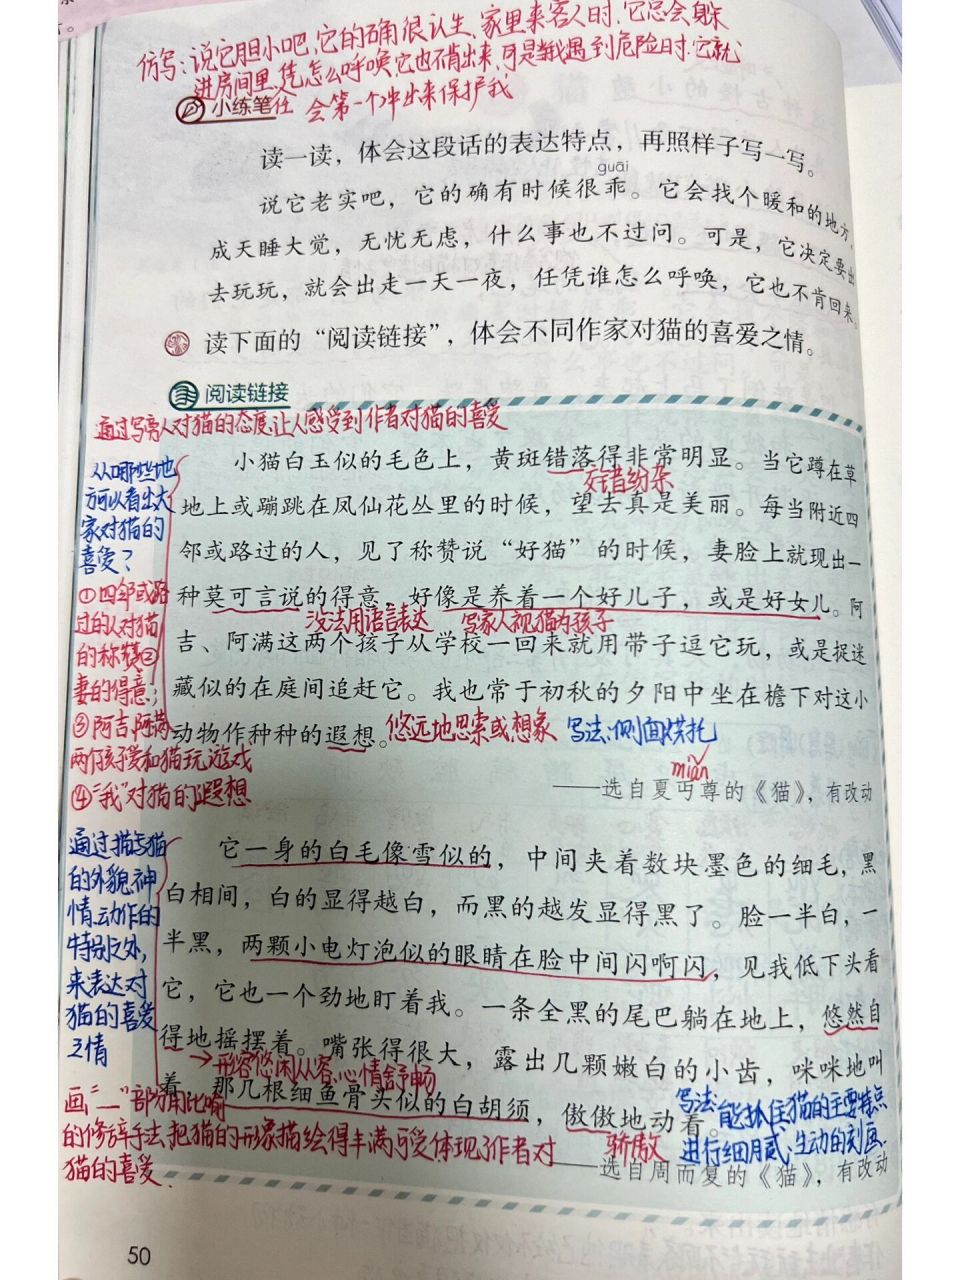 仿写：说它胆小吧，它的确很认生、家里来客人时，它总会躲
进房间里，凭怎么呼唤它也不肯出来，可是当我遇到危险时，它就
任
会第一个冲出来保护我
小练笔
读一读，体会这段话的表达特点，再照样子写一写。
guāi
说它老实吧，它的确有时候很乖。它会找个暖和的地方，
成天睡大觉，无忧无虑，什么事也不过问。可是，它决定要出
去玩玩，就会出走一天一夜，任凭谁怎么呼唤，它也不肯回来。
读下面的“阅读链接”，体会不同作家对猫的喜爱之情。
阅读链接
通过写旁人对猫的态度，让人感受到作者对猫的喜爱
从哪些地
方可以看出大
家对猫的
喜爱？
①四邻或路
过的人对猫
的称赞②
妻的得意；
③阿吉、阿满
两个孩子爱和猫玩游戏
④“我”对猫的遐想
小猫白玉似的毛色上，黄斑错落得非常明显。当它蹲在草
交错纷杂
地上或蹦跳在凤仙花丛里的时候，望去真是美丽。每当附近四
邻或路过的人，见了称赞说“好猫”的时候，妻脸上就现出一
种莫可言说的得意，好像是养着一个好儿子，或是好女儿。阿
没法用语言表达 写家人视猫为孩子
吉、阿满这两个孩子从学校一回来就用带子逗它玩，或是捉迷
藏似的在庭间追赶它。我也常于初秋的夕阳中坐在檐下对这小
动物作种种的遐想。悠远地思索或想象 写法：侧面烘托
miǎn
——选自夏丏尊的《猫》，有改动
通过描写猫
的外貌、神
情、动作的
特别之处，
来表达对
猫的喜爱
之情
它一身的白毛像雪似的，中间夹着数块墨色的细毛，黑
白相间，白的显得越白，而黑的越发显得黑了。脸一半白，一
半黑，两颗小电灯泡似的眼睛在脸中间闪啊闪，见我低下头看
它，它也一个劲地盯着我。一条全黑的尾巴躺在地上，悠然自
得地摇摆着。嘴张得很大，露出几颗嫩白的小齿，咪咪地叫
→形容悠闲从容，心情舒畅
着。那几根细鱼骨头似的白胡须，傲傲地动着。
骄傲
写法：能抓住猫的主要特点
进行细腻、生动的刻画
画“__”部分用比喻
的修辞手法，把猫的形象描绘得丰满可爱体现了作者对
猫的喜爱.
——选自周而复的《猫》，有改动
50